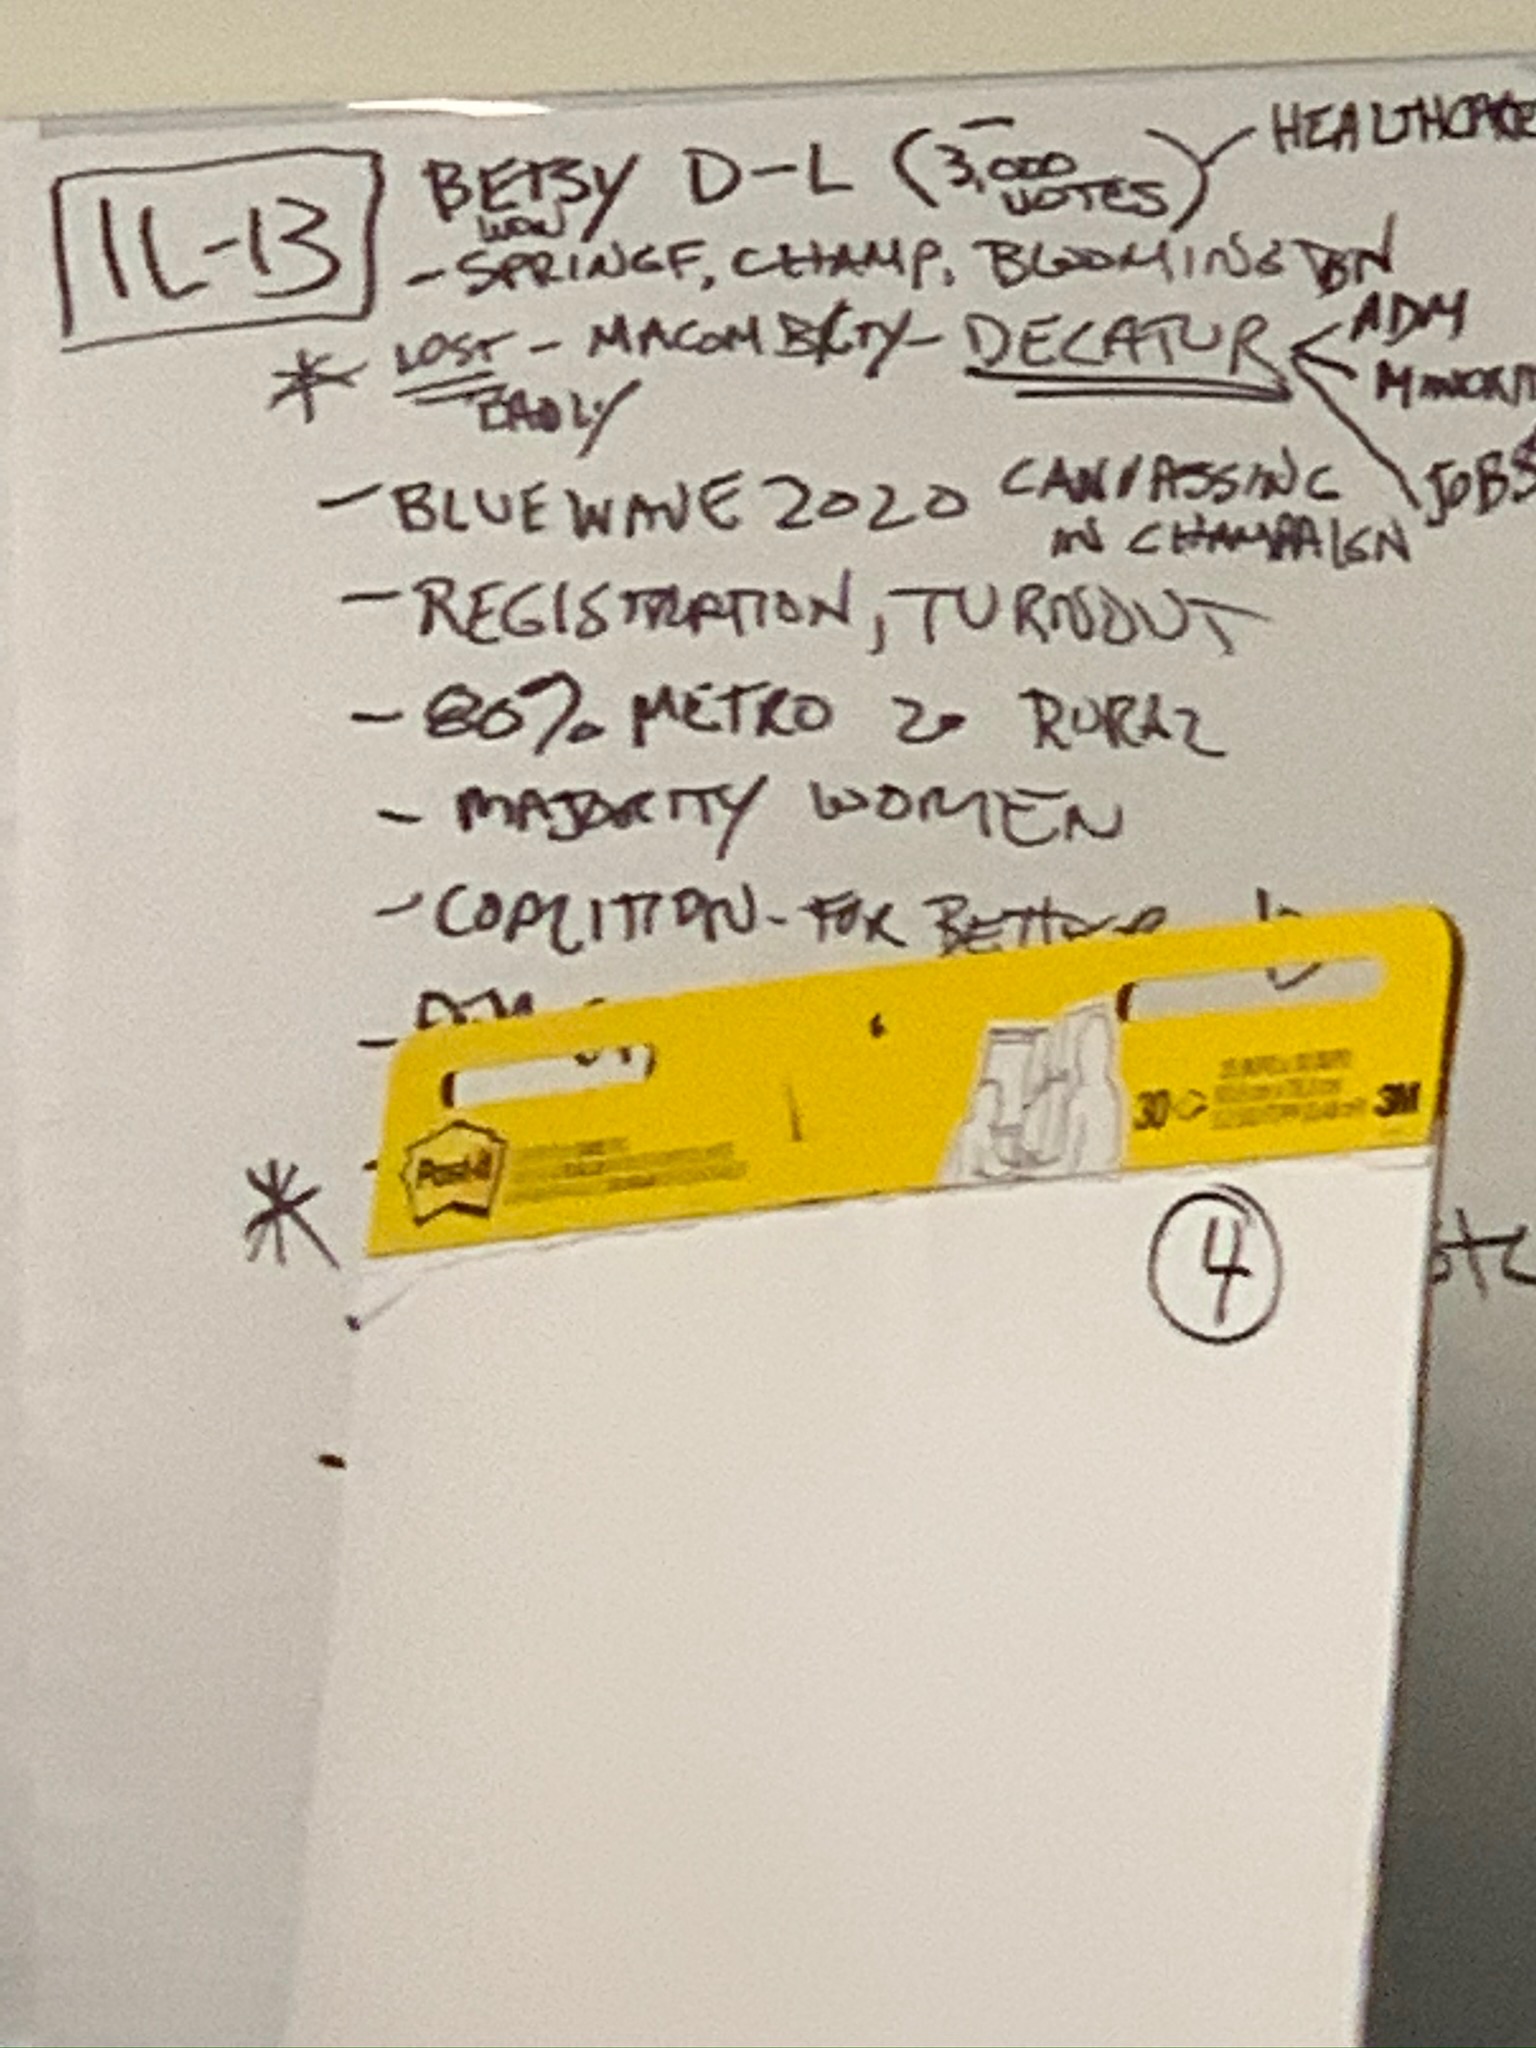 IL-13
BETSY D-L (3,000 VOTES) HEALTHCARE
WON
- SPRINGF, CHAMP, BLOOMINGTON
* LOST - MACOM CTY - DECATUR ADM
BADLY
JOBS
- BLUE WAVE 2020 CANVASSING
IN CHAMPAIGN
- REGISTRATION, TURNOUT
- 80% METRO 20 RURAL
- MAJORITY WOMEN
- COALITION - FOR BETTER
Post-it
30
3M
*
4